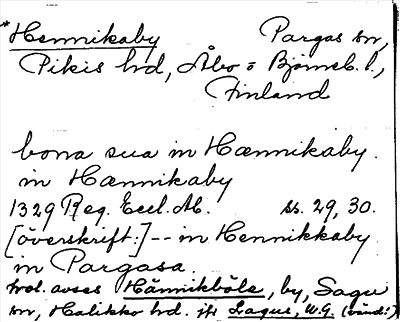 *Hennikaby Pargas sn,
Pikis hd, Åbo o Björneb. l.,
Finland
bona sua in Hænnikaby.
in Hænnikaby
1329 Reg. Eccl. Ab. ss. 29, 30.
[överskrift:] -- in Hennikkaby
in Pargasa.
trol. avses Hännikböle, by, Sagu
sn, Halikko hd. jfr Lagus, W.G. (vänd!)